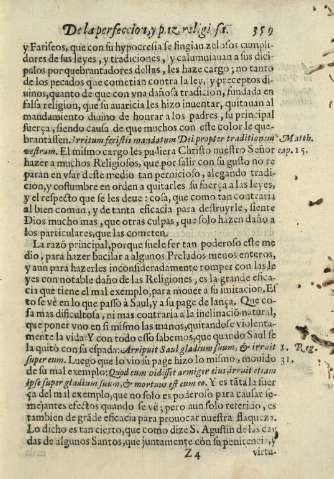 De la perfeccion, y p. 12. religiosa. 359
y Fariseos, que con su hypocresia se fingian zelosos cumpli-
dores de sus leyes, y tradiciones, y calumniauan a sus dici-
pulos por quebrantadores dellas, les haze cargo; no tanto
de los pecados que cometian contra la ley, y preceptos di-
uinos, quanto de que con vna dañosa tradicion, fundada en
falsa religion, que su auaricia les hizo inuentar, quitauan al
mandamiento diuino de honrar a los padres, su principal
fuerça, siendo causa de que muchos con este color le que-
brantassen. Irritum fecistis mandatum Dei propter traditionem Matth.
vostram. El mismo cargo les pudiera Christo nuestro Señor cap. 15.
hazer a muchos Religiosos, que por salir con su gusto no re
paran en vsar deste medio tan pernicioso, alegando tradi-
cion, y costumbre en orden a quitarles su fuerça a las leyes,
y el respecto que se les deue: cosa, que como tan contraria
al bien comun, y de tanta eficacia para destruyrle, siente
Dios mucho mas, que otras culpas, que solo hazen daño a
los particulares, que las cometen.
La razõ principal, porque suele ser tan poderoso este me
dio, para hazer bacilar a algunos Prelados menos enteros,
y aun para hazerles inconsideradamente romper con las le
yes con notable daño de las Religiones, es la grande efica-
cia que tiene el mal exemplo, para mouer a su imitacion. Es
to se vè en lo que passò a Saul, y a su page de lança. Que co-
sa mas dificultosa, ni mas contraria a la inclinaciõ natural,
que poner vno en si mismo las manos, quitandose violenta-
mente la vida? Y con todo esso sabemos, que quando Saul se
la quitò con su espada: Arripuit Saul gladium suum, & irruit 1. Reg.
super eum. Luego que lo vio su page hizo lo mismo, mouido 31.
de su mal exemplo: Quod cum vidisset armiger eius, irruit etiam
ipse super gladium suum, & mortuus est cum eo. Y es tãta la fuer
ça del mal exemplo, que no solo es poderoso para causar se-
mejantes efectos quando se vè; pero aun solo referido, es
tambien de grãde eficacia para prouocar nuestra flaqueza.
Lo dicho es tan cierto, que como dize S. Agustin de las cay
das de algunos Santos, que juntamente con su penitencia, y
Z 4 virtu-